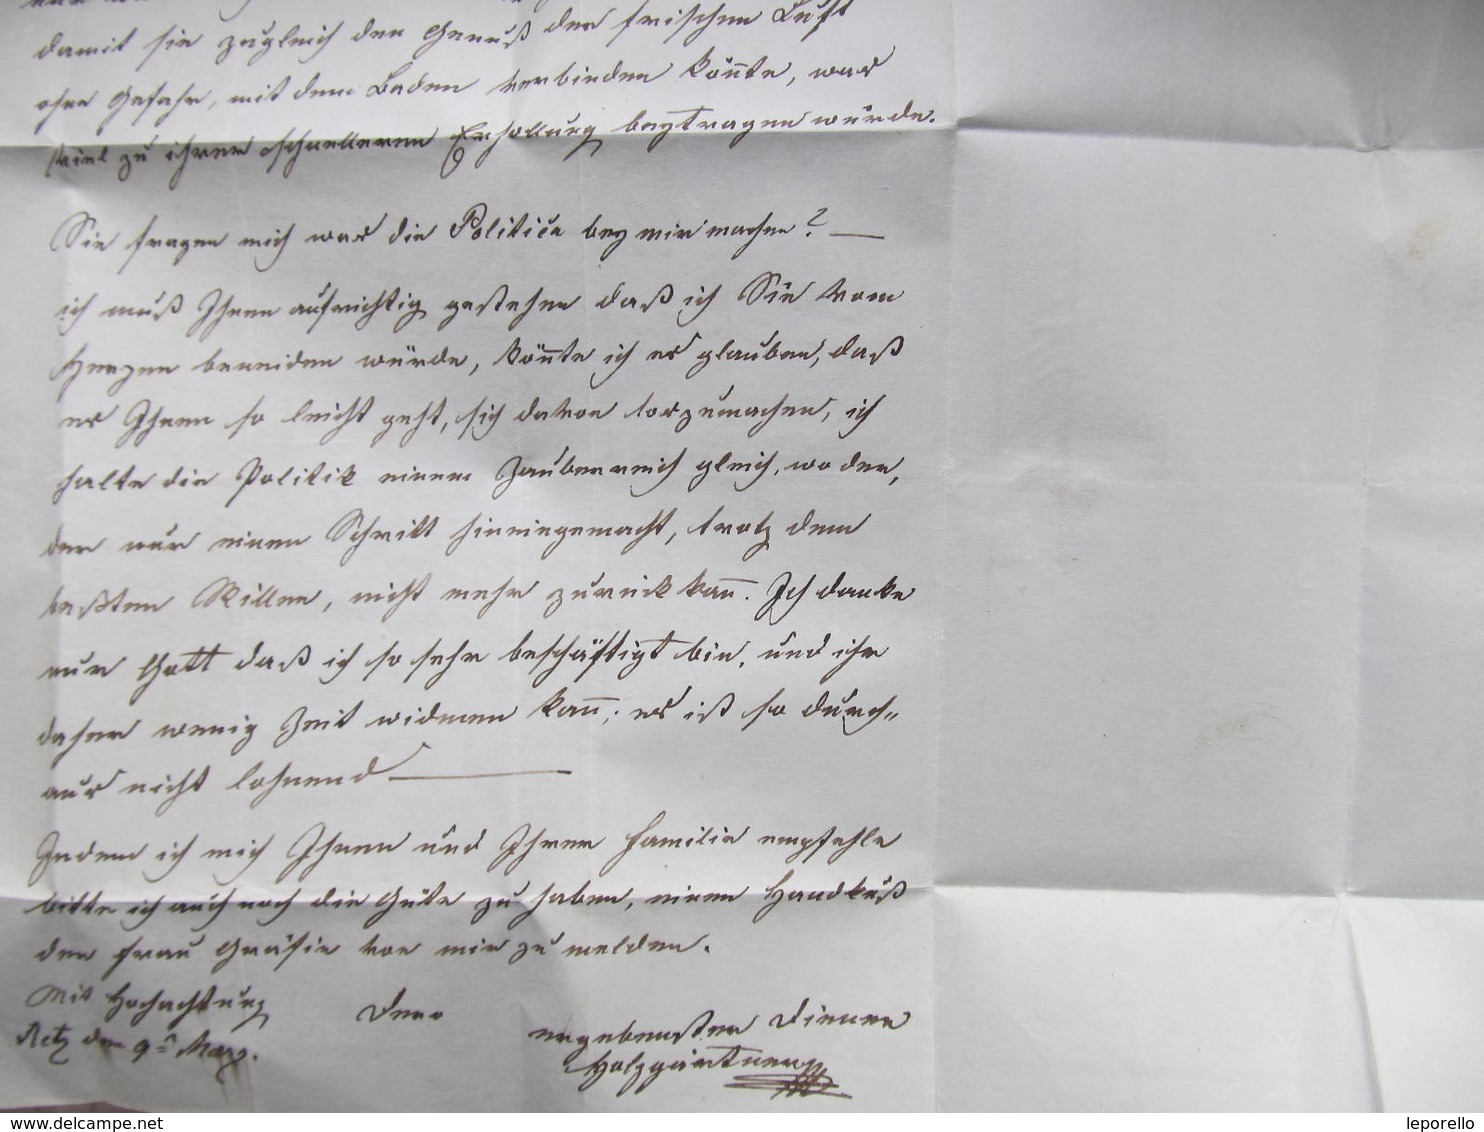 damit sie zugleich den Genuß der frischen Luft
ohne Gefahr, mit dem Baden verbinden kon̅te, was
viel zu ihrer schnelleren Erhollung beytragen würde.
Sie fragen mich was die Politica bey mir mache? —
ich muß Ihnen aufrichtig gestehen daß ich Sie vom
Herzen beneiden würde, kön̅te ich es glauben, daß
es Ihnen so leicht geht, sich davon loszumachen, ich
halte die Politik einem Zauberreich gleich, wo der,
der nur einen Schritt hineingemacht, trotz dem
beßten Willen, nicht mehr zurück kan̅. Ich danke
nur Gott daß ich so sehr beschäftigt bin, und ihr
daher wenig Zeit widmen kan̅; es ist so durch„
aus nicht lohnend —
Indem ich mich Ihnen und Ihrer Familie empfehle
bitte ich auch noch die Güte zu haben, einen Handkuß
der Frau Gräfin von mir zu melden.
Mit Hochachtung Dero ergebenster Diener
Retz den 9n März. Holzgärtner
delcampe.net
leporello